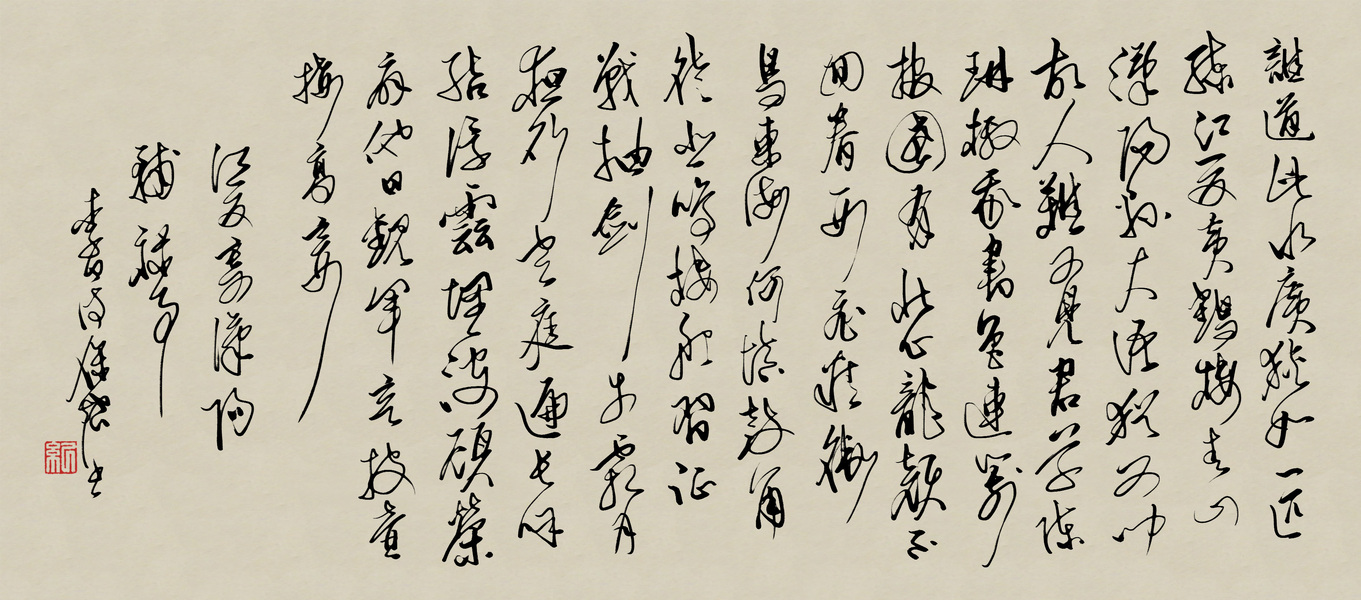 誰道此水廣狹如一匹
練江夏黃鶴樓青山
漢陽縣大語猶可聞
故人難可見君草陳
琳檄我書魯連箭
報國有壯心龍顏不
回眷西飛精衛
鳥東海何填鼓角
徒悲鳴樓船習征
戰抽劍步霜月
夜行空庭遍長呼
結浮雲埋沒顧榮
扇他日觀軍容投壺
接高宴
江夏寄漢陽
輔錄事
李白詩